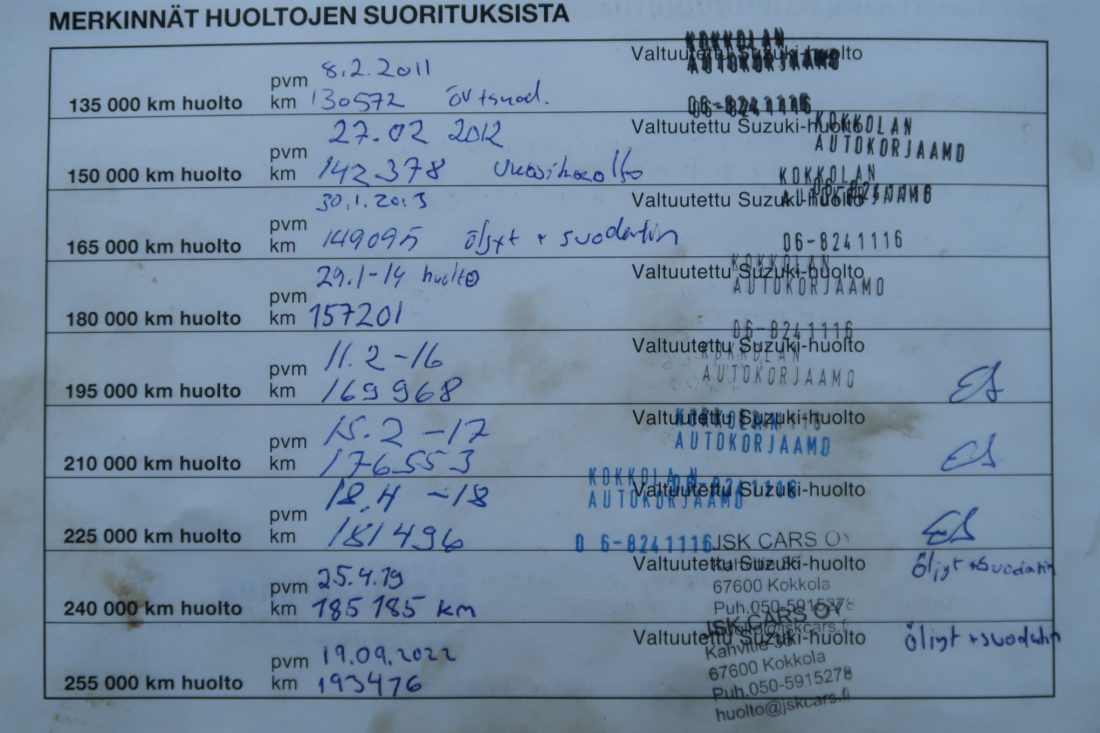 MERKINNÄT HUOLTOJEN SUORITUKSISTA
pvm 8.2.2011 Valtuutettu Suzuki-huolto KOKKOLAN AUTOKORJAAMO
135 000 km huolto km 130572 öv+suod. 06-8241116
pvm 27.02 2012 Valtuutettu Suzuki-huolto KOKKOLAN AUTOKORJAAMO
150 000 km huolto km 142378 vuosihuolto KOKKOLAN
pvm 30.1.2013 Valtuutettu Suzuki-huolto AUTOKORJAAMO
165 000 km huolto km 149095 öljyt + suodatin 06-8241116
pvm 29.1-14 huolto Valtuutettu Suzuki-huolto KOKKOLAN AUTOKORJAAMO
180 000 km huolto km 157201 06-8241116
pvm 11.2-16 Valtuutettu Suzuki-huolto KOKKOLAN
195 000 km huolto km 169968 AUTOKORJAAMO ES
pvm 15.2-17 Valtuutettu Suzuki-huolto KOKKOLAN
210 000 km huolto km 176553 AUTOKORJAAMO ES
pvm 18.4-18 Valtuutettu Suzuki-huolto KOKKOLAN AUTOKORJAAMO
225 000 km huolto km 181496 06-8241116 ES
JSK CARS OY
pvm 25.4.19 Valtuutettu Suzuki-huolto öljyt+suodatin
67600 Kokkola
240 000 km huolto km 185 185 km Puh.050-5915278
JSK CARS OY
pvm 19.09.2022 Valtuutettu Suzuki-huolto öljyt+suodatin
67600 Kokkola
255 000 km huolto km 193476 Puh.050-5915278
huolto@jskcars.fi